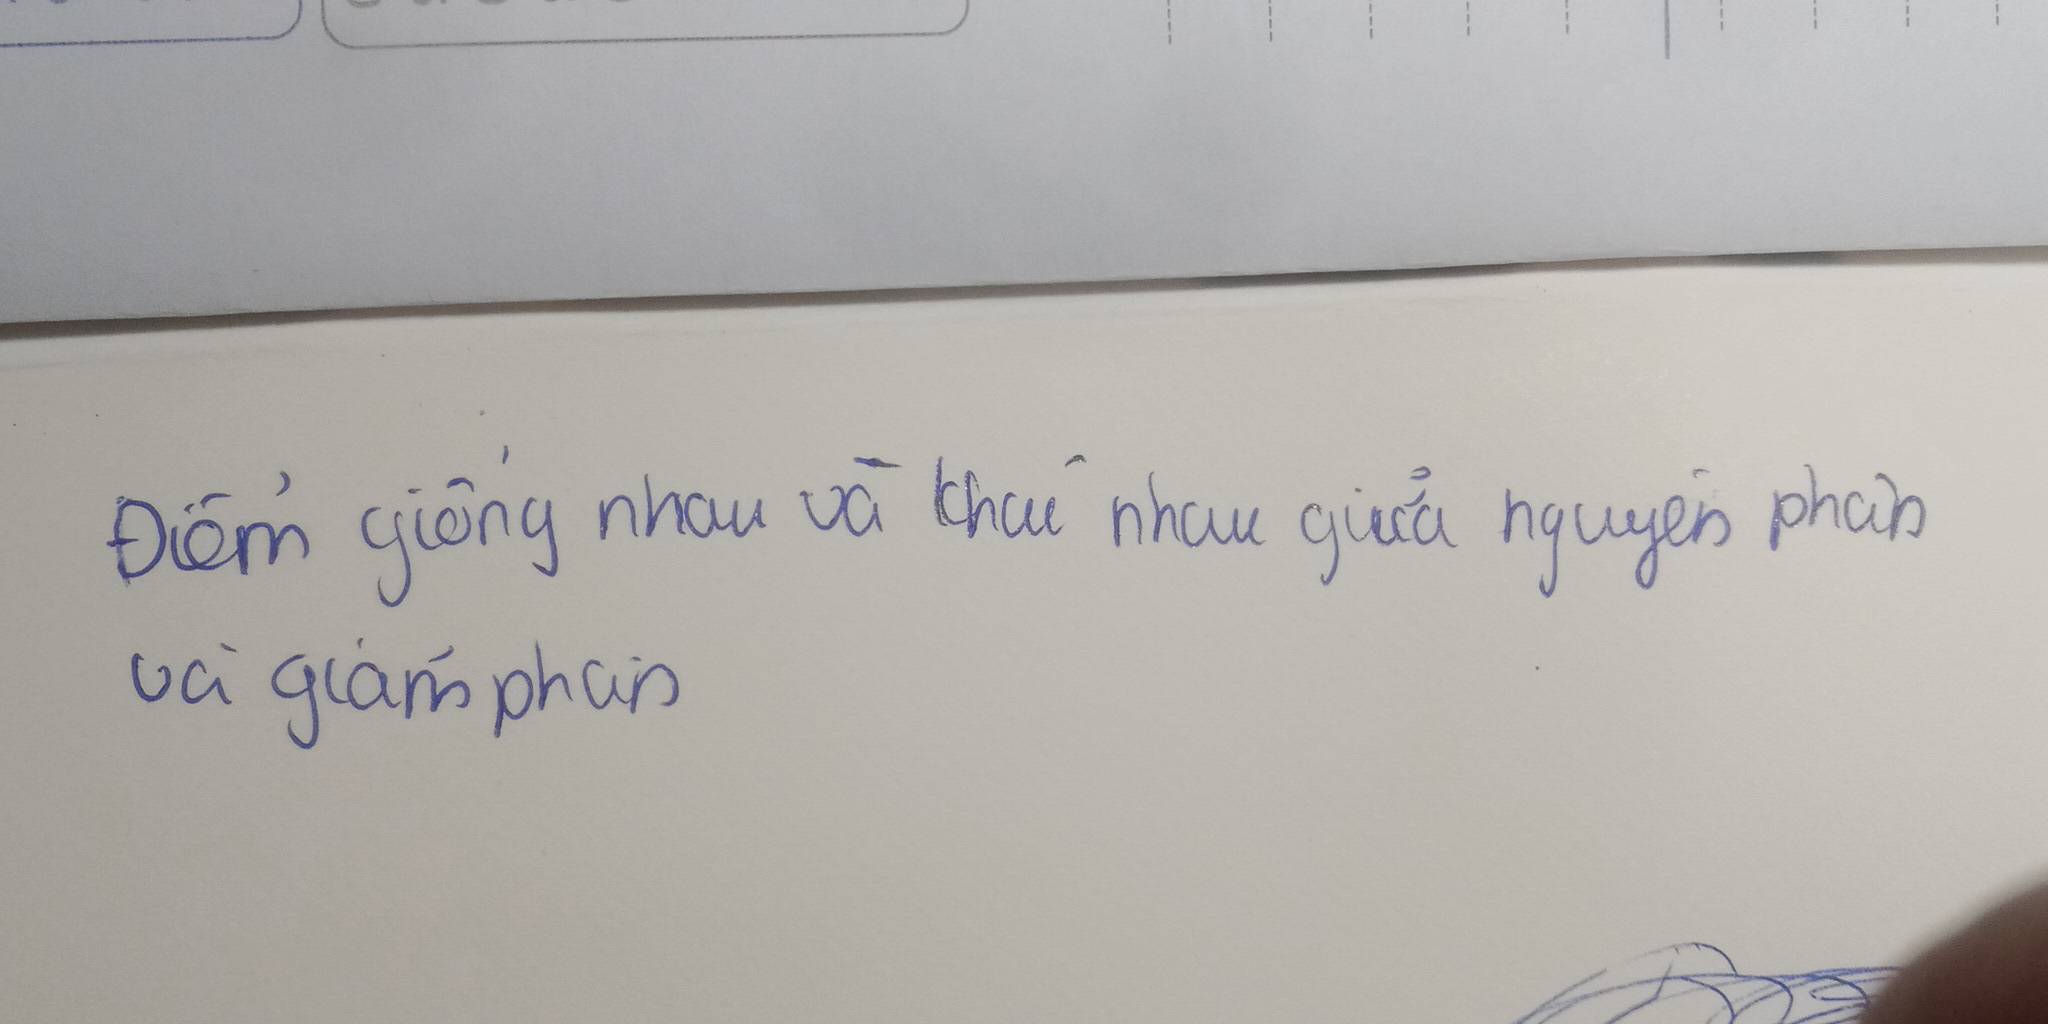 Điểm giống nhau và khác nhau giữa nguyên phân
và giảm phân